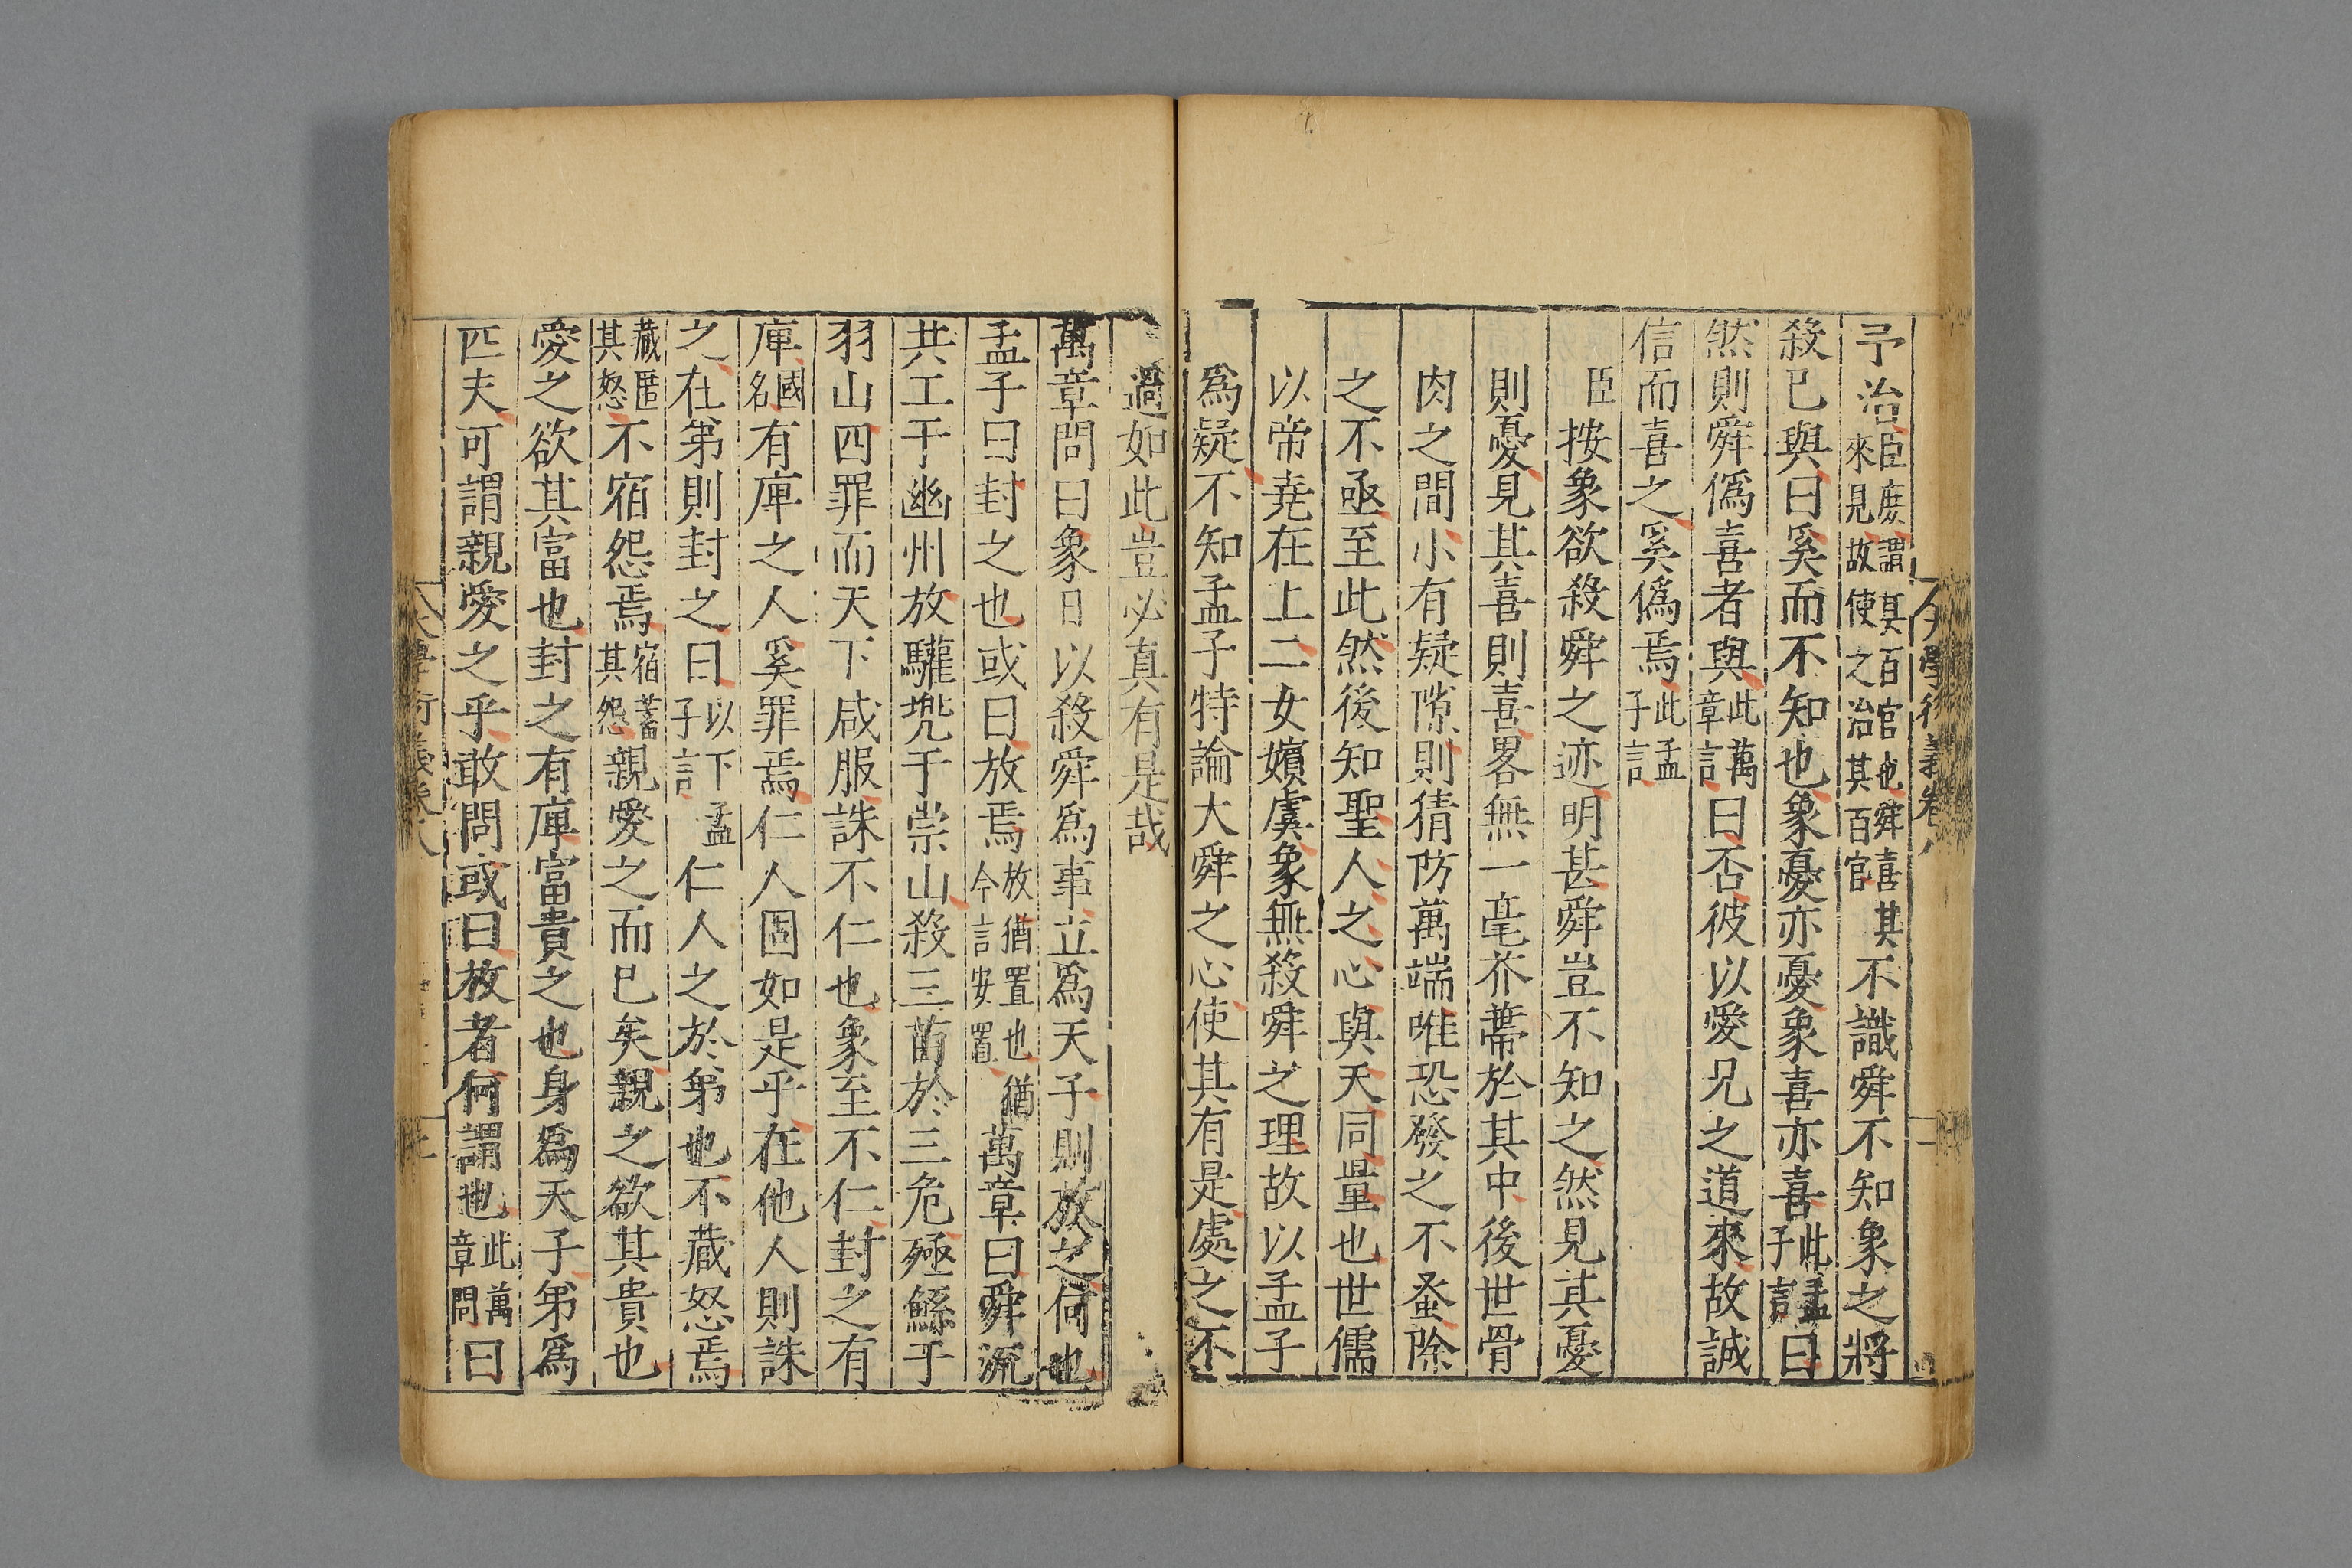 予治臣庶謂其百官也舜喜其來見故使之治其百官不識舜不知象之將
殺已與曰奚而不知也象憂亦憂象喜亦喜此孟子言曰
然則舜僞喜者與此萬章言曰否彼以愛兄之道來故誠
信而喜之奚僞焉此孟子言
臣按象欲殺舜之迹明甚舜豈不知之然見其憂
則憂見其喜則喜畧無一毫芥蔕於其中後世骨
肉之間小有疑隙則猜防萬端唯恐發之不蚤除
之不亟至此然後知聖人之心與天同量也世儒
以帝堯在上二女嬪虞象無殺舜之理故以孟子
爲疑不知孟子特論大舜之心使其有是處之不
過如此豈必真有是哉
萬章問曰象日以殺舜爲事立爲天子則放之何也
孟子曰封之也或曰放焉放猶置也猶今言安置萬章曰舜流
共工于幽州放驩兠于崇山殺三苗於三危殛鯀于
羽山四罪而天下咸服誅不仁也象至不仁封之有
庳國名有庳之人奚罪焉仁人固如是乎在他人則誅
之在弟則封之曰以下孟子言仁人之於弟也不藏怒焉
藏匿其怒不宿怨焉宿蓄其怨親愛之而已矣親之欲其貴也
愛之欲其富也封之有庳富貴之也身爲天子弟爲
匹夫可謂親愛之乎敢問或曰放者何謂也此萬章問曰